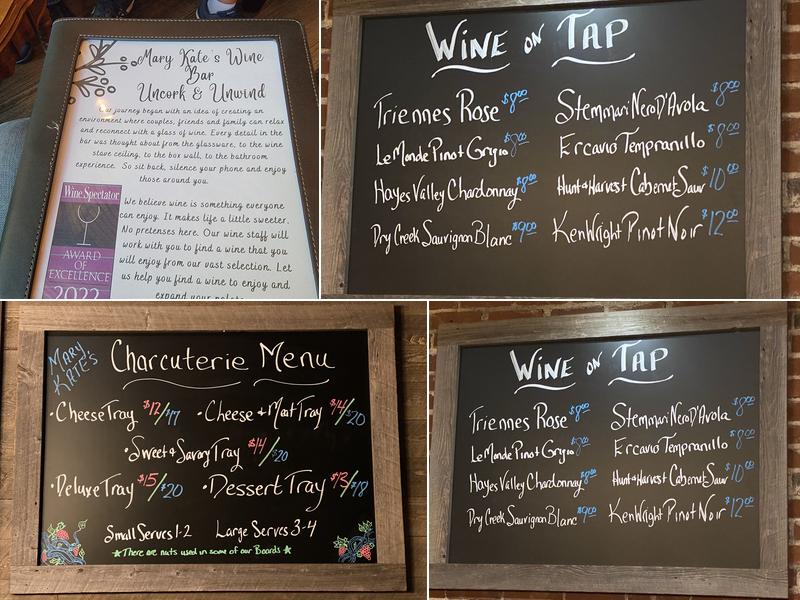 Mary Kate's Wine
Bar
Uncork & Unwind
Our journey began with an idea of creating an
environment where couples, friends and family can relax
and reconnect with a glass of wine. Every detail in the
bar was thought about from the glassware, to the wine
stave ceiling, to the box wall, to the bathroom
experience. So sit back, silence your phone and enjoy
those around you.
Wine Spectator
AWARD
OF
EXCELLENCE
2022
We believe wine is something everyone
can enjoy. It makes life a little sweeter.
No pretenses here. Our wine staff will
work with you to find a wine that you
will enjoy from our vast selection. Let
us help you find a wine to enjoy and
expand your
WINE ON TAP
Triennes Rose $8.00
Le Monde Pinot Grigio $8.00
Hayes Valley Chardonnay $8.00
Dry Creek Sauvignon Blanc $9.00
Stemmari Nero D'Avola $8.00
Ercavio Tempranillo $8.00
Hunt & Harvest Cabernet Sauv $10.00
Ken Wright Pinot Noir $12.00
MARY
KATE'S
Charcuterie Menu
• Cheese Tray $12/$17
• Cheese & Meat Tray $14/$20
• Sweet & Savory Tray $14/$20
• Deluxe Tray $15/$20
• Dessert Tray $13/$18
Small Serves 1-2 Large Serves 3-4
★ There are nuts used in some of our Boards ★
WINE ON TAP
Triennes Rose $8.00
Le Monde Pinot Grigio $8.00
Hayes Valley Chardonnay $8.00
Dry Creek Sauvignon Blanc $9.00
Stemmari Nero D'Avola $8.00
Ercavio Tempranillo $8.00
Hunt & Harvest Cabernet Sauv $10.00
Ken Wright Pinot Noir $12.00